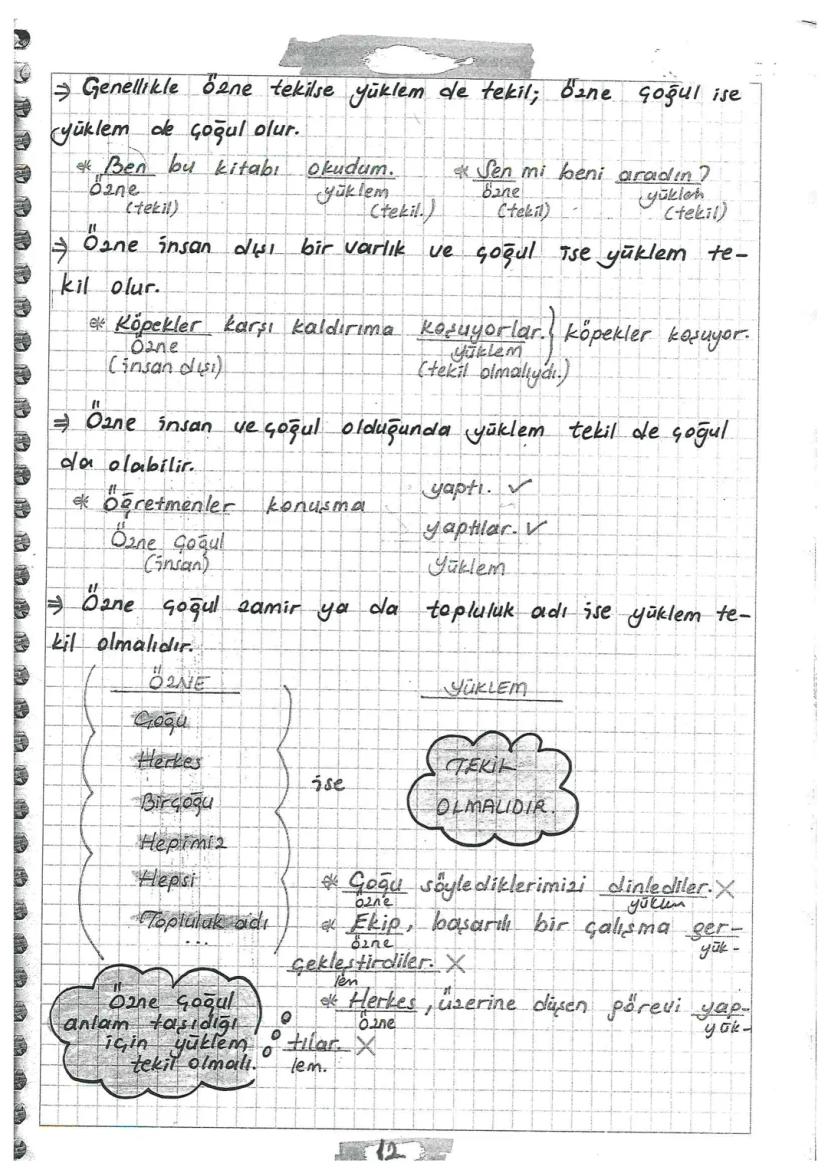 ⇒ Genellikle özne tekilse yüklem de tekil; özne çoğul ise
yüklem de çoğul olur.
* Ben bu kitabı okudum. * Sen mi beni aradın?
özne yüklem özne yüklem
(tekil) (tekil.) (tekil) (tekil)
⇒ Özne insan dışı bir varlık ve çoğul ise yüklem te-
kil olur.
* Köpekler karşı kaldırıma koşuyorlar.} köpekler koşuyor.
Özne yüklem
(insan dışı) (tekil olmalıydı.)
⇒ Özne insan ve çoğul olduğunda yüklem tekil de çoğul
da olabilir.
yaptı. ✓
* Öğretmenler konuşma
yaptılar. ✓
Özne çoğul
(insan) Yüklem
⇒ Özne çoğul zamir ya da topluluk adı ise yüklem te-
kil olmalıdır.
ÖZNE YÜKLEM
Çoğu
Herkes
Birçoğu
Hepimiz
Hepsi
Topluluk adı
...
ise
TEKİL
OLMALIDIR.
* Çoğu söylediklerimizi dinlediler. ✗
özne yüklem
* Ekip, başarılı bir çalışma ger-
özne yük-
çekleştirdiler. ✗
lem
* Herkes, üzerine düşen pörevi yap-
özne yük-
tılar. ✗
lem.
Özne çoğul
anlam taşıdığı
için yüklem
tekil olmalı.
12